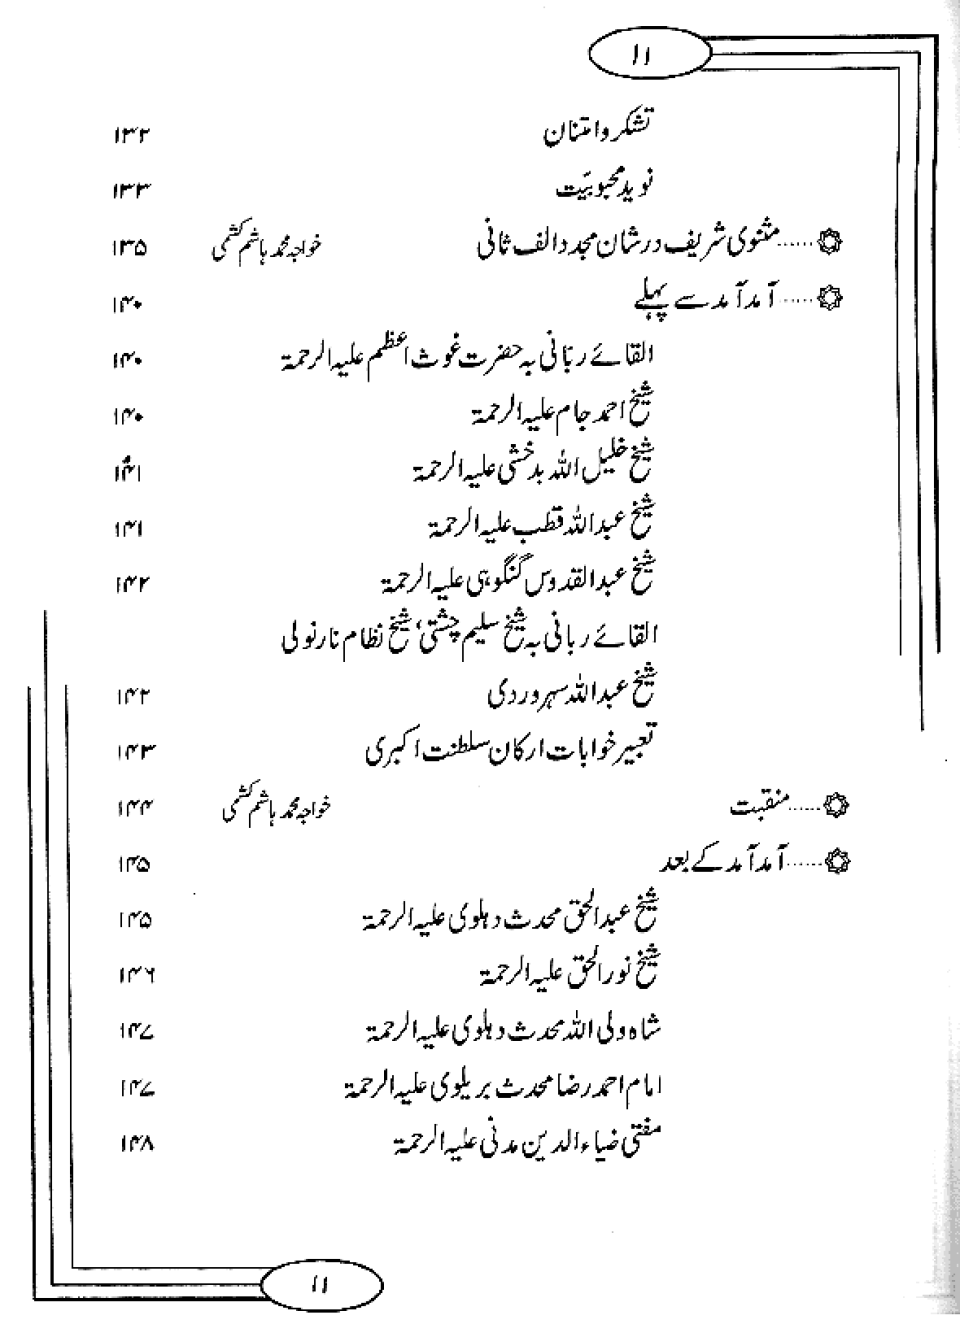 ۱۱
تشکر و امتنان ۱۳۲
نوید محبوبیّت ۱۳۳
۞......مثنوی شریف در شان مجدد الف ثانی خواجہ محمد ہاشم کشمی ۱۳۵
۞......آمد آمد سے پہلے ۱۴۰
القائے ربّانی بہ حضرت غوث اعظم علیہ الرحمۃ ۱۴۰
شیخ احمد جام علیہ الرحمۃ ۱۴۰
شیخ خلیل اللہ بدخشی علیہ الرحمۃ ۱۴۱
شیخ عبداللہ قطب علیہ الرحمۃ ۱۴۱
شیخ عبدالقدوس گنگوہی علیہ الرحمۃ ۱۴۲
القائے ربانی بہ شیخ سلیم چشتی، شیخ نظام نارنولی
شیخ عبداللہ سہروردی ۱۴۲
تعبیر خوابات ارکان سلطنت اکبری ۱۴۳
۞......منقبت خواجہ محمد ہاشم کشمی ۱۴۴
۞......آمد آمد کے بعد ۱۴۵
شیخ عبدالحق محدث دہلوی علیہ الرحمۃ ۱۴۵
شیخ نورالحق علیہ الرحمۃ ۱۴۶
شاہ ولی اللہ محدث دہلوی علیہ الرحمۃ ۱۴۷
امام احمد رضا محدث بریلوی علیہ الرحمۃ ۱۴۷
مفتی ضیاء الدین مدنی علیہ الرحمۃ ۱۴۸
۱۱